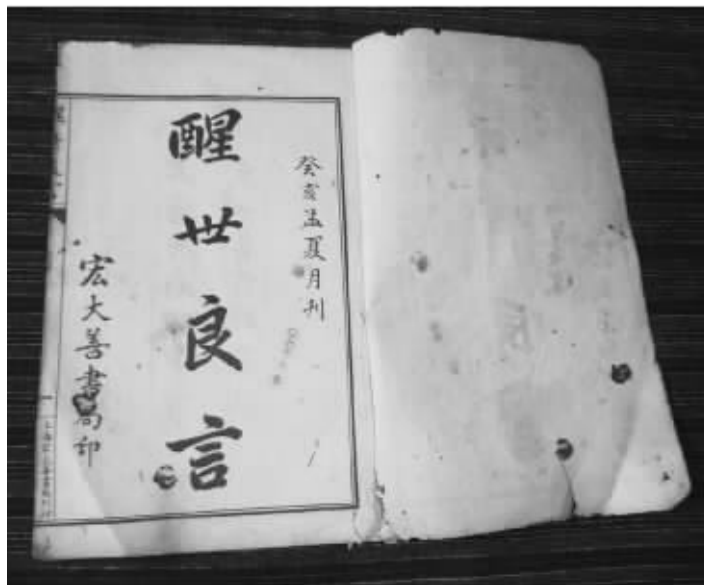 癸亥孟夏月刊
醒世良言
宏大善書局印